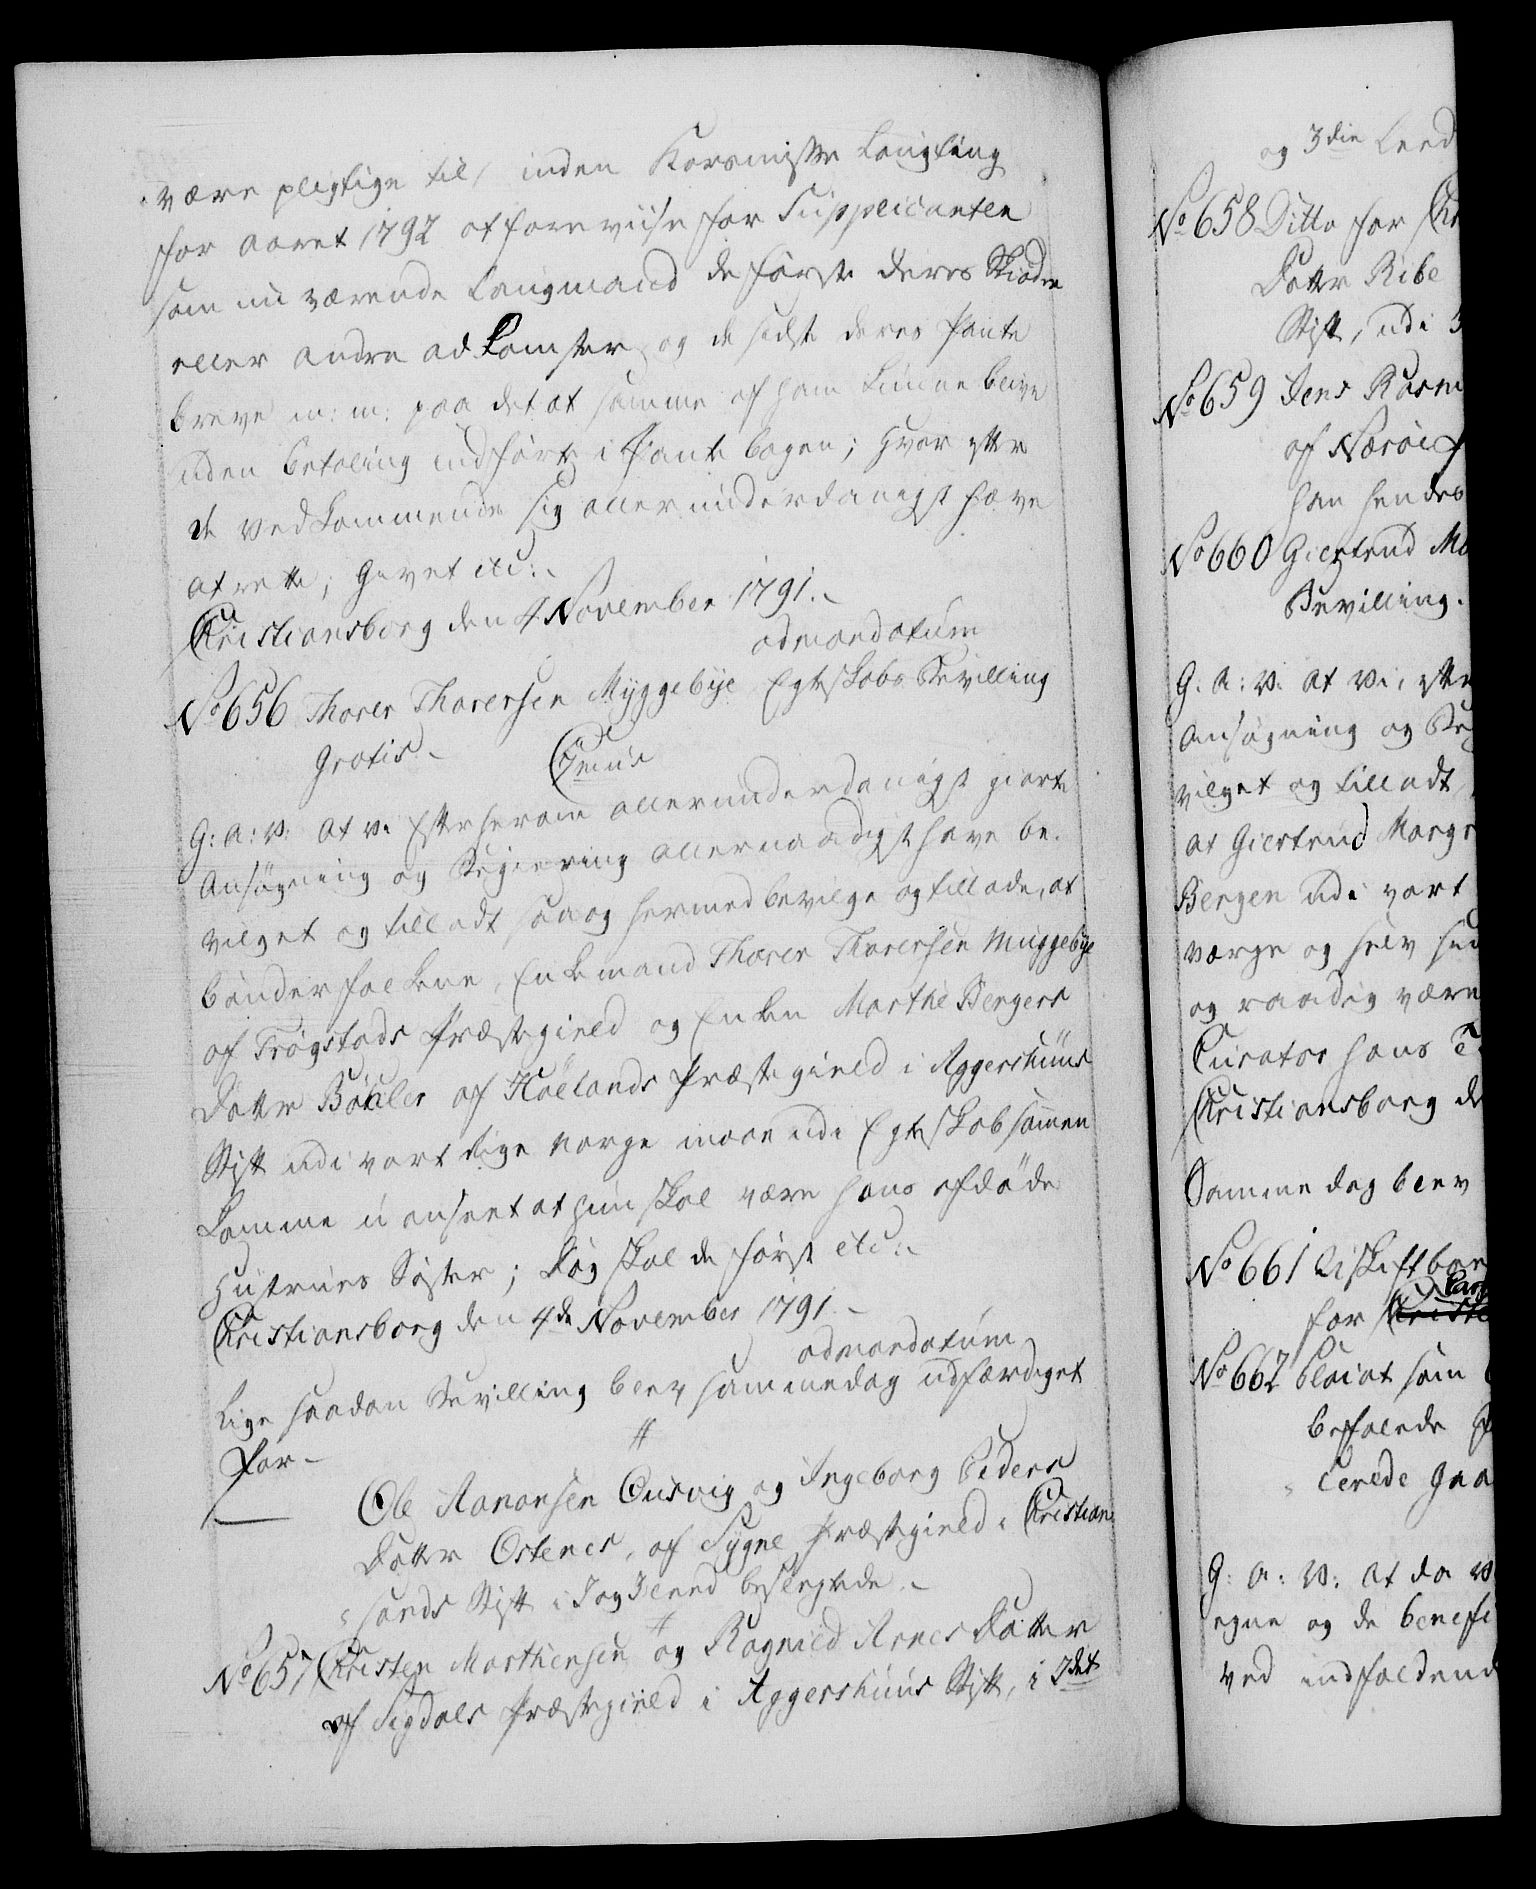 være pligtige til, inden Korsmisse Laugting
for Aaret 1792 at foreviise for Supplicanten
som nu værende Laugmand de første deres Skiøde
eller andre ad Komster og de sidste deres Pante
breve m: m: paa det at samme af ham kunne blive
uden betaling indførte i Pante bogen; Hvor efter
de vedkommende sig allerunderdanigst have
at rette; Givet etc:
Christiansborg den 4 November 1791.
ad mandatum
No 656 Thorer Thorersen Myggebye Egteskabs Bevilling
Gratis. Gmüs
G: A: V: At vi Efter herom allerunderdanigst giorte
Ansøgning og Begiering allernaadigst have be-
vilget og tilladt saa og hermed bevilge og tillade, at
bønderfolkene, Enkemand Thorer Thorersen Muggebye
af Trøgstads Præstegield og Enken Marthe Bergers
Datter Böhler af Höelands Præstegield i Aggershuus
Stift udi vort Rige Norge maae udi Egteskab sammen
komme uanseet at hun skal være hans afdøde
Hustrues Søster; Dog skal de først etc:
Christiansborg den 4de November 1791.
ad mandatum
Lige saadan Bevilling blev samme dag udfærdiget
for
Ole Aanonsen Cusvig og Ingeborg Peders
Datter Ostenes, af Sygne Præstegield i Christian-
sands Stift i 3 og 3 Leed beslegtede.
No 657 Christen Marthinsen og Ragnild Arnes Datter
af Sigdals Præstegield i Aggershuus Stift, i 2det
og 3die Leed
No 658 Ditto for
Datter Ribe
Stift, udi 3
No 659 Jens Rasm
af Nærøe
han hendes
No 660 Giertrud Ma
Bevilling.
G. A: V. At Vi, efter
Ansøgning og Beg
vilget og tilladt,
at Giertrud Margr
Bergen udi vort
værge og selv
og raadig være
Curator hans
Christiansborg de
Samme dag blev
No 661 Uskiftbar
for Christe
No 662 Placat som
befalende
cerede Gaa
G: A: V: At da v
egne og de benefi
ved indfaldend